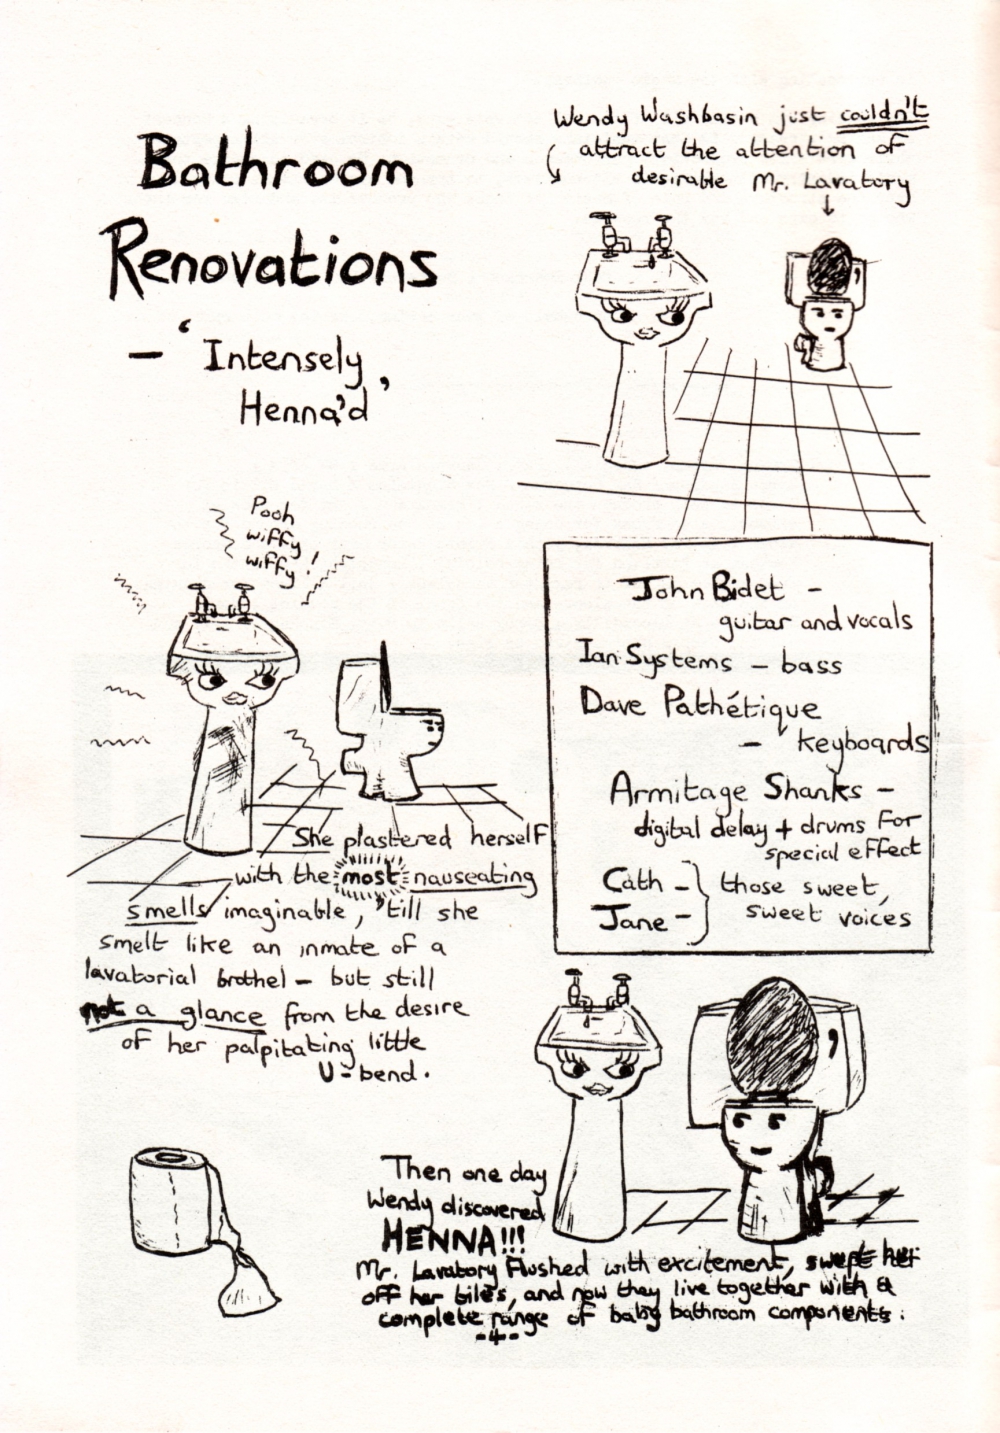 Bathroom
Renovations
- 'Intensely
Henna'd'
Wendy Washbasin just couldn't
attract the attention of
desirable Mr. Lavatory
Pooh
wiffy
wiffy!
She plastered herself
with the most nauseating
smells imaginable, 'till she
smelt like an inmate of a
lavatorial brothel - but still
not a glance from the desire
of her palpitating little
U-bend.
John Bidet -
guitar and vocals
Ian Systems - bass
Dave Pathétique
- keyboards
Armitage Shanks -
digital delay + drums for
special effect
Cath -
Jane -
those sweet,
sweet voices
Then one day
Wendy discovered
HENNA!!!
Mr. Lavatory flushed with excitement, swept her
off her tiles, and now they live together with a
complete range of baby bathroom components.
-4-